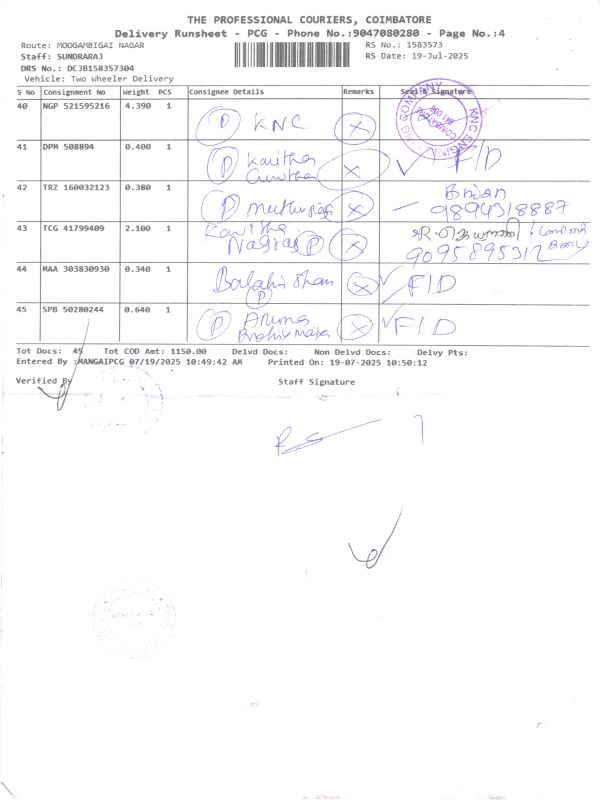 THE PROFESSIONAL COURIERS, COIMBATORE
Delivery Runsheet - PCG - Phone No.:9047080280 - Page No.:4
Route: MOOGAMBIGAI NAGAR RS No.: 1583573
Staff: SUNDRARAJ RS Date: 19-Jul-2025
DRS No.: DCJB158357304
Vehicle: Two Wheeler Delivery
S No Consignment No Weight PCS Consignee Details Remarks Seal & Signature
40 NGP 521595216 4.390 1 P KNC X
KNC ENGINE COMPANY
COIMBATORE
641 006
41 DPM 508894 0.400 1 P Kavitha X F/D
42 TRZ 160032123 0.380 1 P X
9894318887
43 TCG 41799409 2.100 1 Kavitha X
Nagraj P 9095895312
44 MAA 303830930 0.340 1 X F/D
P
45 SPB 50280244 0.640 1 P Aruna X F/D
Tot Docs: 45 Tot COD Amt: 1150.00 Delvd Docs: Non Delvd Docs: Delvy Pts:
Entered By :MANGAIPCG 07/19/2025 10:49:42 AM Printed On: 19-07-2025 10:50:12
Verified By Staff Signature